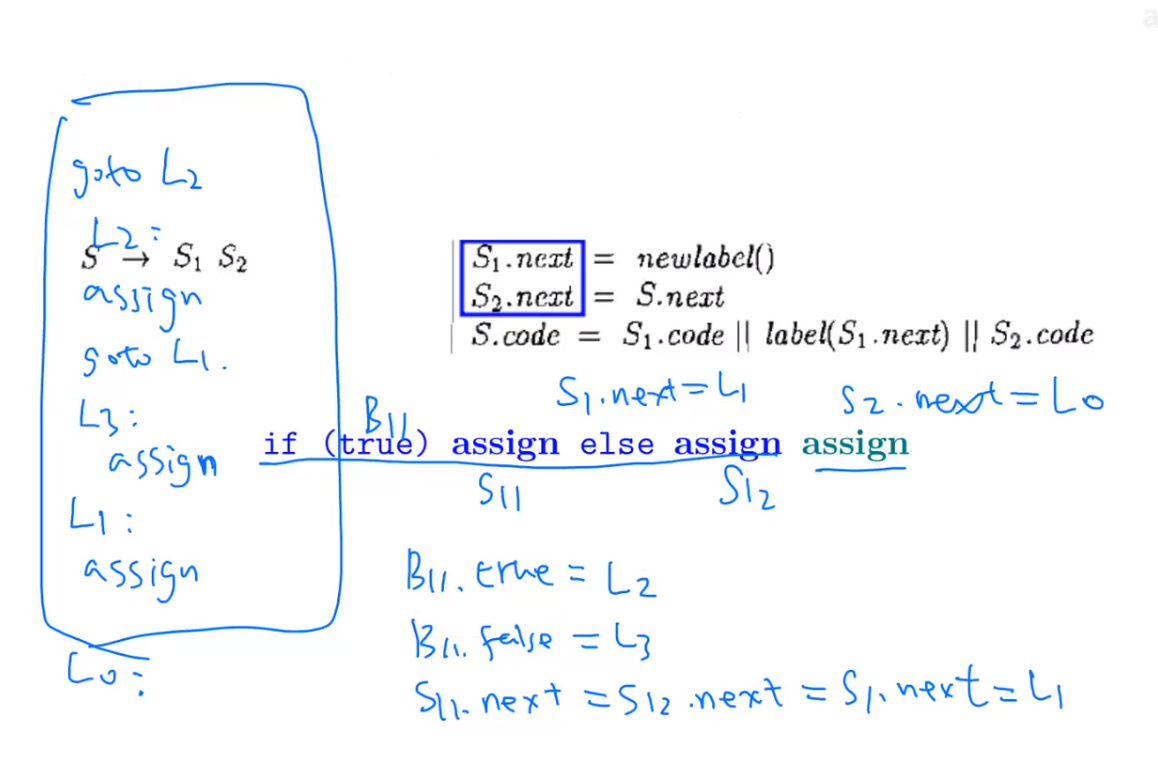 a
goto L2
L2:
S → S1 S2
assign
goto L1.
L3:
assign
L1:
assign
L0:
S1.next = newlabel()
S2.next = S.next
S.code = S1.code || label(S1.next) || S2.code
S1.next=L1 S2.next=L0
B11
if (true) assign else assign assign
S11 S12
B11.true = L2
B11.false = L3
S11.next = S12.next = S1.next = L1